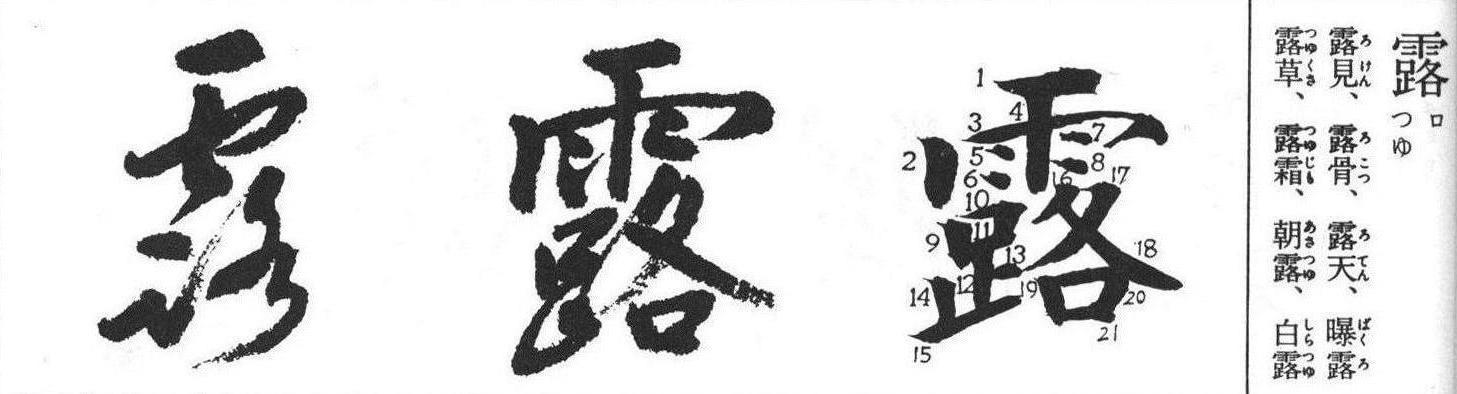 露
ロ
つゆ
露見、露骨、露天、曝露
ろけん ろこつ ろてん ばくろ
露草、露霜、朝露、白露
つゆくさ つゆじも あさつゆ しらつゆ
露
1 2 3 4 5 6 7 8 9 10 11 12 13 14 15 16 17 18 19 20 21
露
露